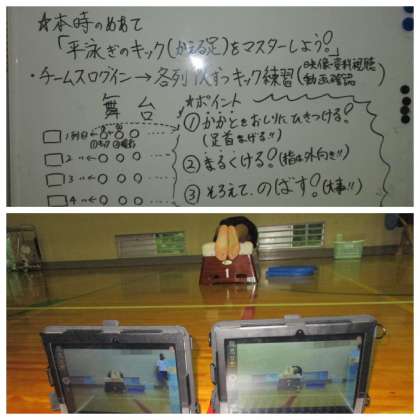 ☆本時のめあて
「平泳ぎのキック(かえる足)をマスターしよう!」
・チームスログイン→各列1人ずつキック練習(映像・資料視聴
動画確認)
舞台
☆ポイント
1列目
①かかとをおしりにひきつける!
(足首まげる!!)
2
②まるくける!(指は外向き!!)
3
③そろえて、のばす!(大事!!)
4
1